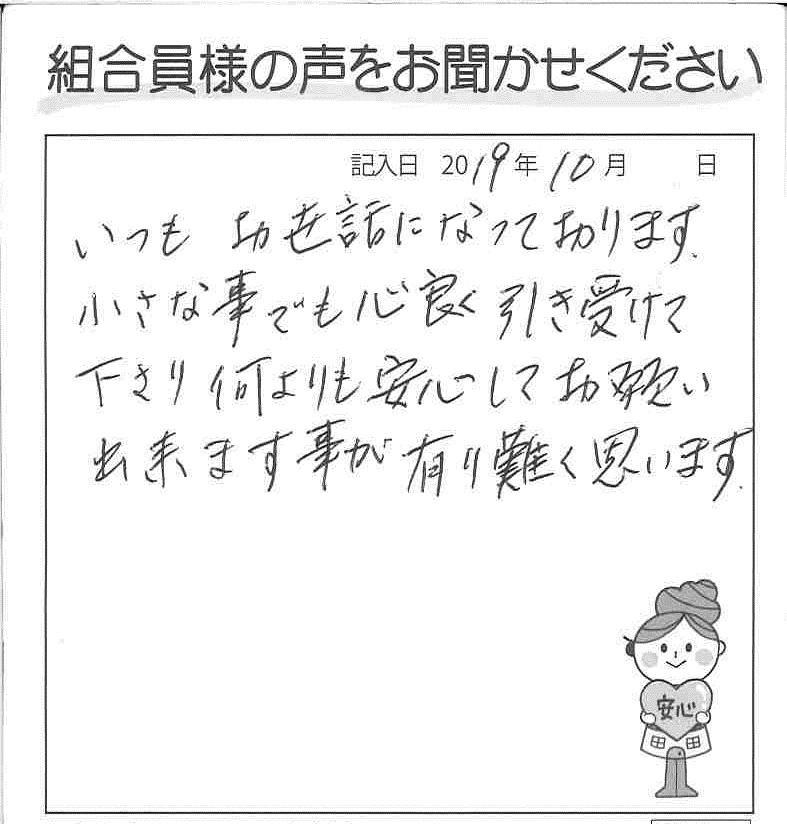 組合員様の声をお聞かせください
記入日 2019年10月 日
いつも お世話になっております.
小さな事でも心良く引き受けて
下さり何よりも安心してお願い
出来ます事が有り難く思います.
安心